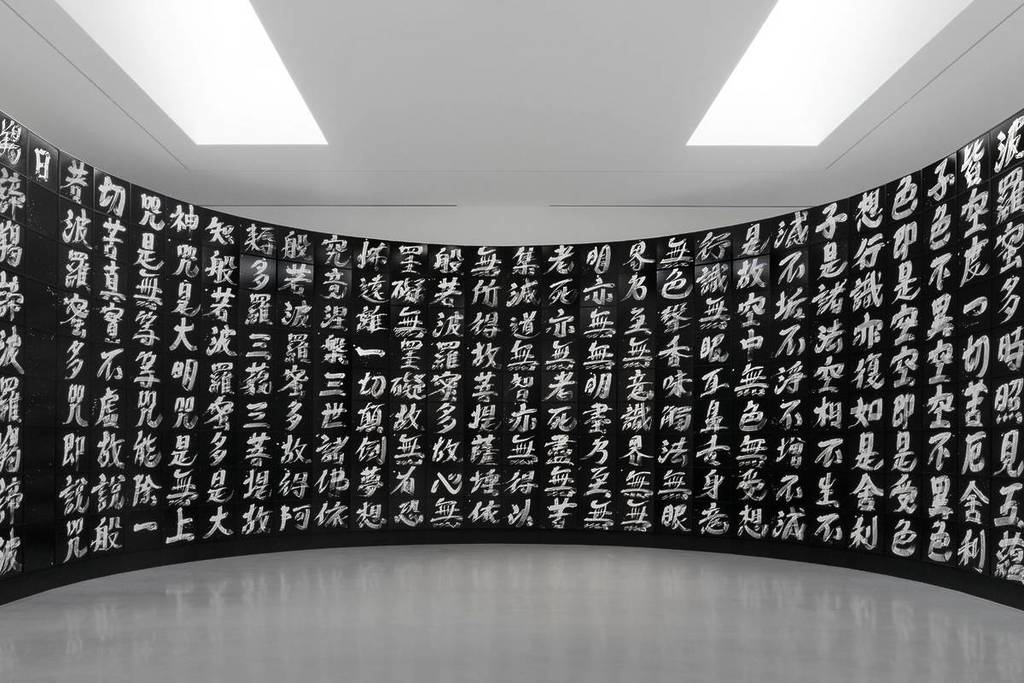 波羅蜜多時照見五蘊
皆空度一切苦厄舍利
子色不異空空不異色
色即是空空即是受色
想行識亦復如是舍利
子是諸法空相不生不
滅不垢不淨不增不減
是故空中無色無受想
行識無眼耳鼻舌身意
無色聲香味觸法無眼
界乃至無意識界無無
明亦無無明盡乃至無
老死亦無老死盡無苦
集滅道無智亦無得以
無所得故菩提薩埵依
般若波羅蜜多故心無
罣礙無罣礙故無有恐
怖遠離一切顛倒夢想
究竟涅槃三世諸佛依
般若波羅蜜多故得阿
耨多羅三藐三菩提故
知般若波羅蜜多是大
神咒是大明咒是無上
咒是無等等咒能除一
切苦真實不虛故說般
若波羅蜜多咒即說咒
曰
揭諦揭諦波羅揭諦波